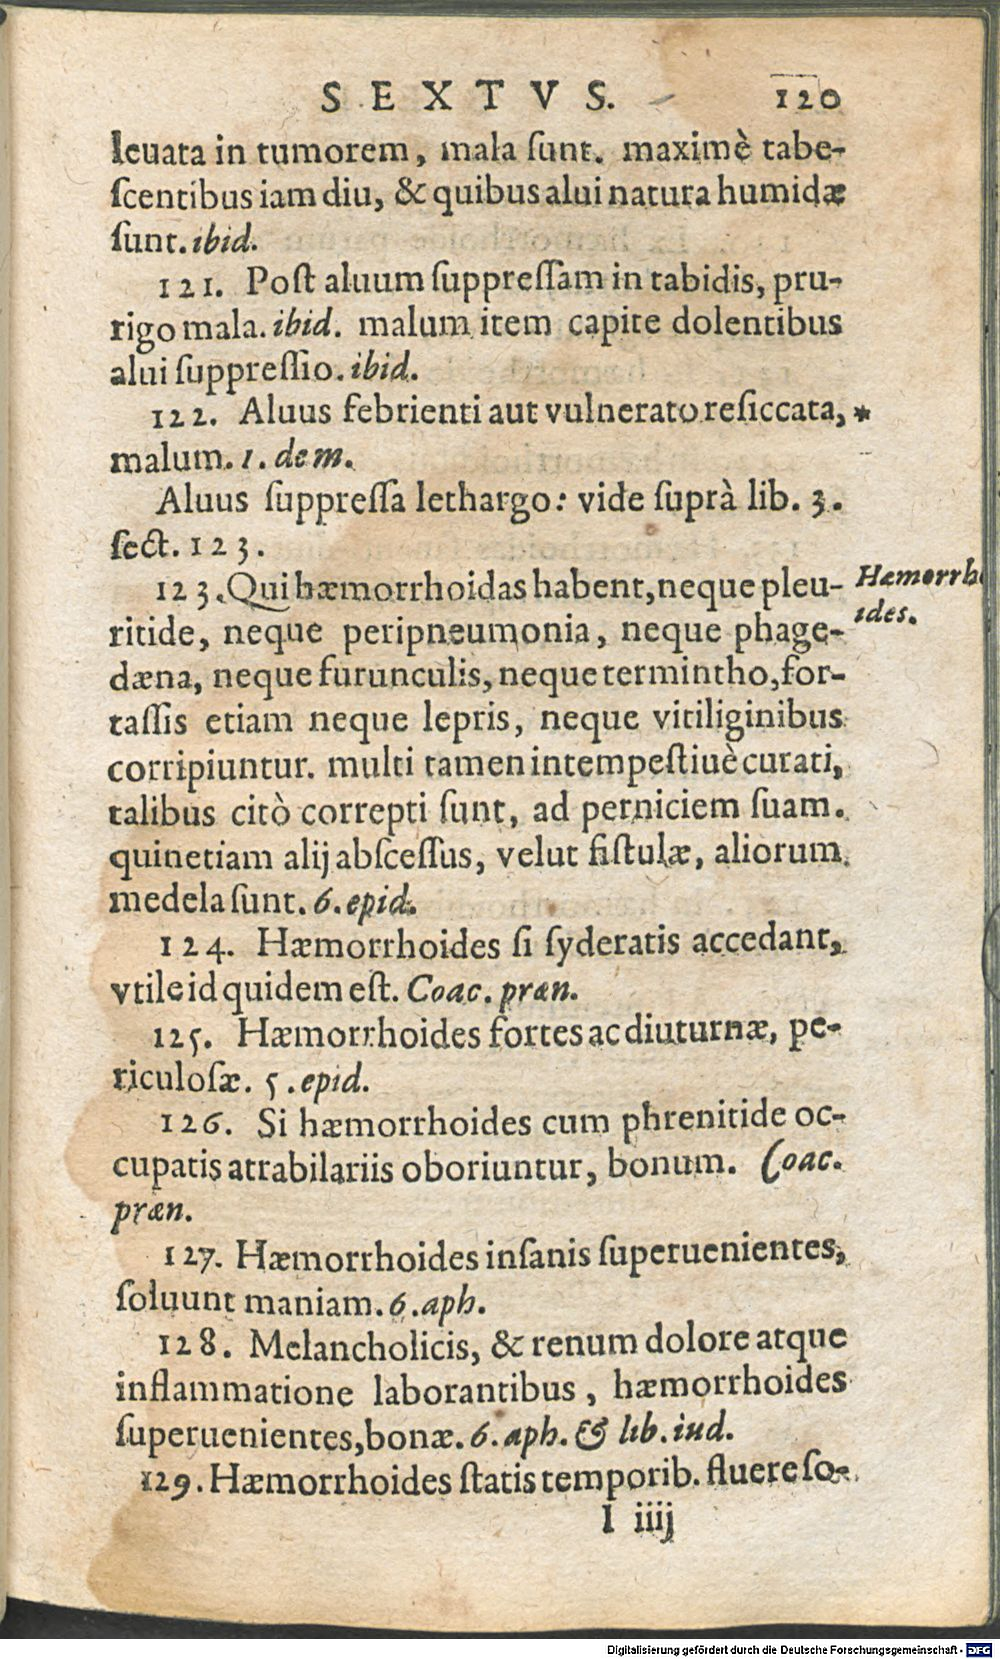 SEXTVS. 120
leuata in tumorem, mala ſunt. maximè tabe-
ſcentibus iam diu, & quibus alui natura humidæ
ſunt. ibid.
121. Poſt aluum ſuppreſſam in tabidis, pru-
rigo mala. ibid. malum item capite dolentibus
alui ſuppreſſio. ibid.
122. Aluus febrienti aut vulnerato reſiccata, *
malum. 1. dem.
Aluus ſuppreſſa lethargo: vide ſuprà lib. 3.
ſect. 123.
123. Qui hæmorrhoidas habent, neque pleu-
Hæmorrho
ides.
ritide, neque peripneumonia, neque phage-
dæna, neque furunculis, neque termintho, for-
taſſis etiam neque lepris, neque vitiliginibus
corripiuntur. multi tamen intempeſtiuè curati,
talibus citò correpti ſunt, ad perniciem ſuam.
quinetiam alij abſceſſus, velut fiſtulæ, aliorum
medela ſunt. 6. epid.
124. Hæmorrhoides ſi ſyderatis accedant,
vtile id quidem eſt. Coac. præn.
125. Hæmorrhoides fortes ac diuturnæ, pe-
riculoſæ. 5. epid.
126. Si hæmorrhoides cum phrenitide oc-
cupatis atrabilariis oboriuntur, bonum. Coac.
præn.
127. Hæmorrhoides inſanis ſuperuenientes,
ſoluunt maniam. 6. aph.
128. Melancholicis, & renum dolore atque
inflammatione laborantibus, hæmorrhoides
ſuperuenientes, bonæ. 6. aph. & lib. iud.
129. Hæmorrhoides ſtatis temporib. fluere ſo-
I iiij
Digitalisierung gefördert durch die Deutsche Forschungsgemeinschaft - DFG